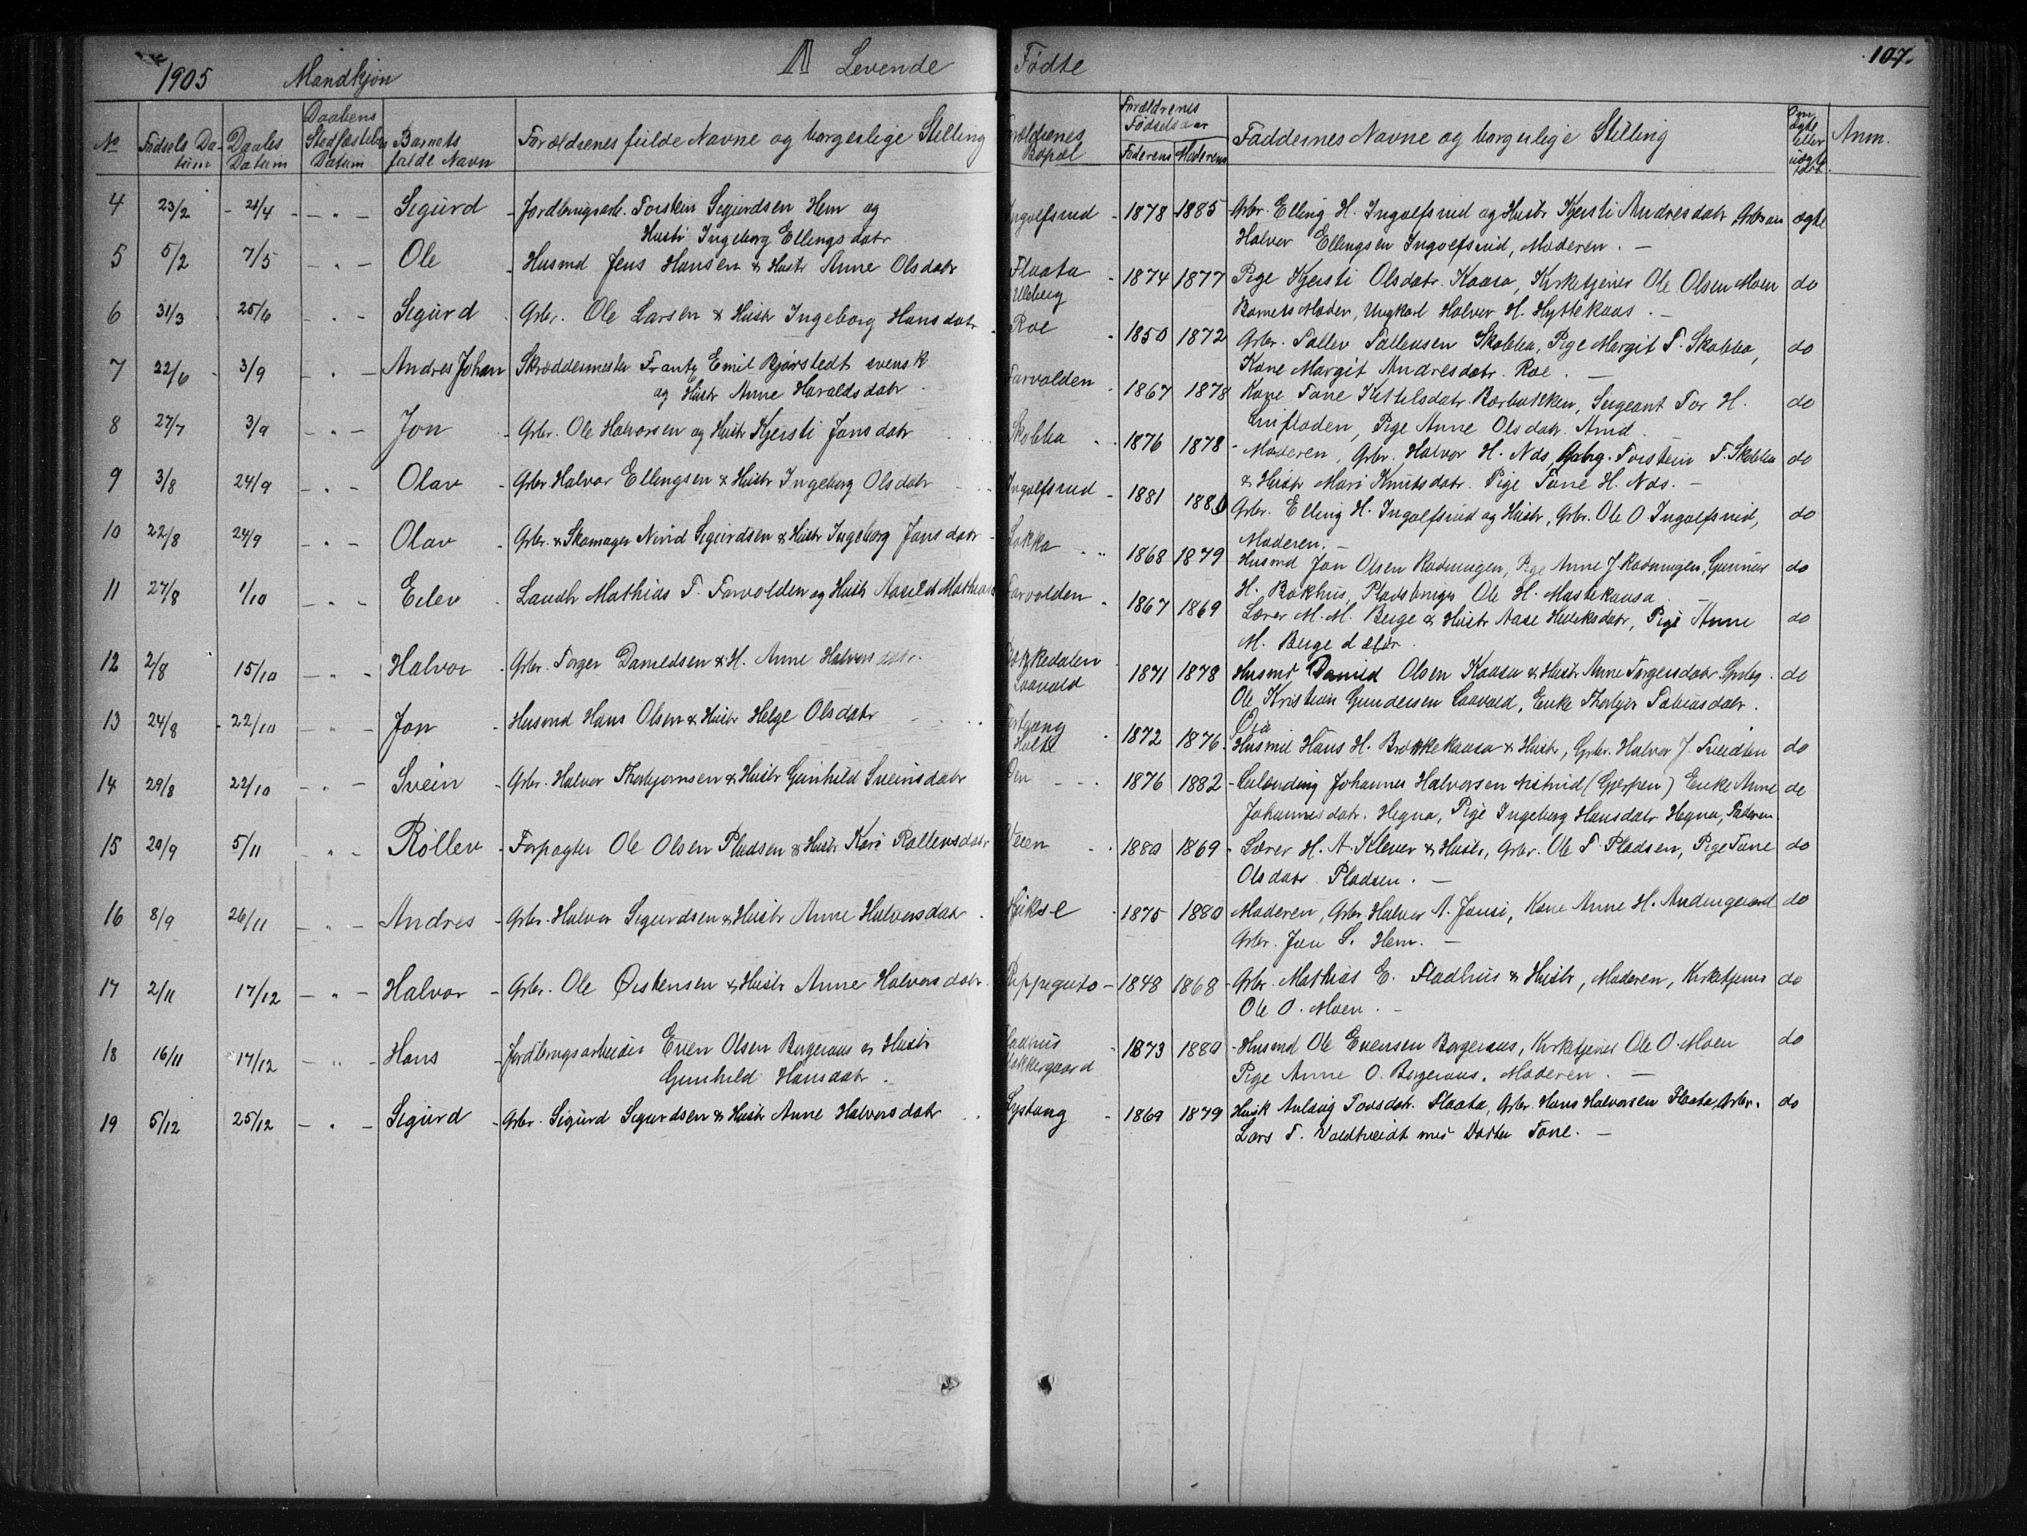 1905 Mandkjøn A Levende Fødte 107.
No Fødsels Datum Daabs Datum Daabens Stadfæstelses Datum Barnets fulde Navn Forældrenes fulde Navne og borgerlige Stilling Forældrenes Bopæl Forældrenes Fødselsaar Faderens Moderens Faddernes Navne og borgerlige Stilling Om ægte eller uægte født. Anm.
4 23/2 - 24/4 - - " - Sigurd - Jordbrugsarb. Torstein Sigurdsen Hem og Ingolfsrud - 1878 1885 Grbr. Elling H. Ingolfsrud og Hustr Kjersti Andresdatr ægte
Hustr Ingeborg Ellingsdatr Halvor Ellingsen Ingolfsrud, Moderen. -
5 5/2 7/5 - " - Ole - Husmd Jens Hansen & Hustr Anne Olsdatr Flaata - 1874 1877 Pige Kjersti Olsdatr. Kaasa, Kirketjener Ole Olsen Moen do
Ulsberg Barnets Moder, Ungkarl Halvor H. Hyttekaas. -
6 31/3 25/6 - " - Sigurd Grbr. Ole Larsen & Hustr Ingeborg Hansdatr. Roe - 1850 1872 Grbr. Tallev Tallevsen Skobba, Pige Margit T. Skobba, do
Kone Margit Andresdatr. Roe. -
7 22/6 3/9 - " - Andres Johan Skræddermester Frantz Emil Bjørstedt svensk Farvolden 1867 1878 Kone Tone Kittilsdatr Bærbakken, Sergeant Tor H. do
og Hustr Anne Haraldsdatr Pige Anne Olsdatr.
8 27/7 3/9 - " - Jon - Grbr. Ole Halvorsen og Hustr Kjersti Jonsdatr Skobba 1876 1878 - Moderen, Grbr. Halvor H. Nds, Torstein T. Skobba do
& Hustr Mari Knutsdatr. Pige Tone H. Nds. -
9 3/8 24/9 - " - Olav Grbr Halvor Ellingsen & Hustr Ingeborg Olsdatr Ingolfsrud - 1881 1880 Grbr. Elling H. Ingolfsrud og Hustr, Grbr. Ole O. Ingolfsrud, do
Moderen. -
10 22/8 24/9 - " - Olav - Grbr. & Skomager Nirid Sigurdsen & Hustr Ingeborg Jonsdatr - 1868 1879 Husmd Jon Olsen Rodningen, Pige Anne J. Rodningen, Gunnar do
H. Bakhus, Pladsbruger Ole H. Mastekaasa. -
11 27/8 1/10 - " - Eilev Landh Mathias T. Farvolden og Hustr Aaseld Farvolden - 1867 1869 Lærer M. M. Berge & Hustr Aase do
Pige Anne M. Berge
12 2/8 15/10 - " - Halvor - Grbr. Torger Danielsen & H. Anne Halvorsdatr. 1871 1878 Husmd Daniel Olsen Kaasa & Hustr Anne Torgersdatr do
Laavald Ole Kristian Gundersen Laavald, Enke Tobiasdatr.
13 24/8 - 22/10 - " - Jon - Husmd Hans Olsen & Hustr Helge Olsdatr 1872 1876 - Husmd Hans H. & Hustr, Grbr. Halvor J. do
Holte
14 29/8 22/10 - " - Svein - Grbr. Halvor Thorbjørnsen & Hustr Gunhild Sveinsdatr Øen 1876 1882 - Johannes Halvorsen (Gjerpen) Enke Anne do
Johannesdatr. Hegna, Pige Ingeborg Hansdatr Hegna, Faderen.
15 20/9 5/11 " - Rollev - Forpagter Ole Olsen Pladsen & Hustr Kari Rollevsdatr Veien 1880 1869 - Lærer H. A. Klever & Hustr, Grbr. Ole T. Pladsen, Pige Tone do
Olsdatr Pladsen. -
16 8/9 26/11 - " - Andres - Grbr. Halvor Sigurdsen & Hustr Anne Halvorsdatr Hjuksе 1875 1880 Moderen, Grbr. Halvor A. Jønsi, Kone Anne H. do
Grbr. Jon S. Hem. -
17 2/11 17/12 - " - Halvor - Grbr. Ole Østensen & Hustr Anne Halvorsdatr. - 1848 1868 - Grbr. Mathias E. Fladhus & Hustr, Moderen, Kirketjener do
Ole O. Moen. -
18 16/11 17/12 - " - Hans - Jordbrugsarbeider Even Olsen Bergeraas & Hustr Fladhus - 1873 1880 - Husmd Ole Evensen Bergeraas, Kirketjener Ole O. Moen do
Gunhild Hansdatr. Pige Anne O. Bergeraas, Moderen. -
19 5/12 25/12 - " - Sigurd - Grbr. Sigurd Sigurdsen & Hustr Anne Halvorsdatr Lystang - 1869 1879 Aslaug Torsdatr. Flaata, Grbr. Hans Halvorsen Flaata, Grbr. do
Lars T. med Datter Tone. -